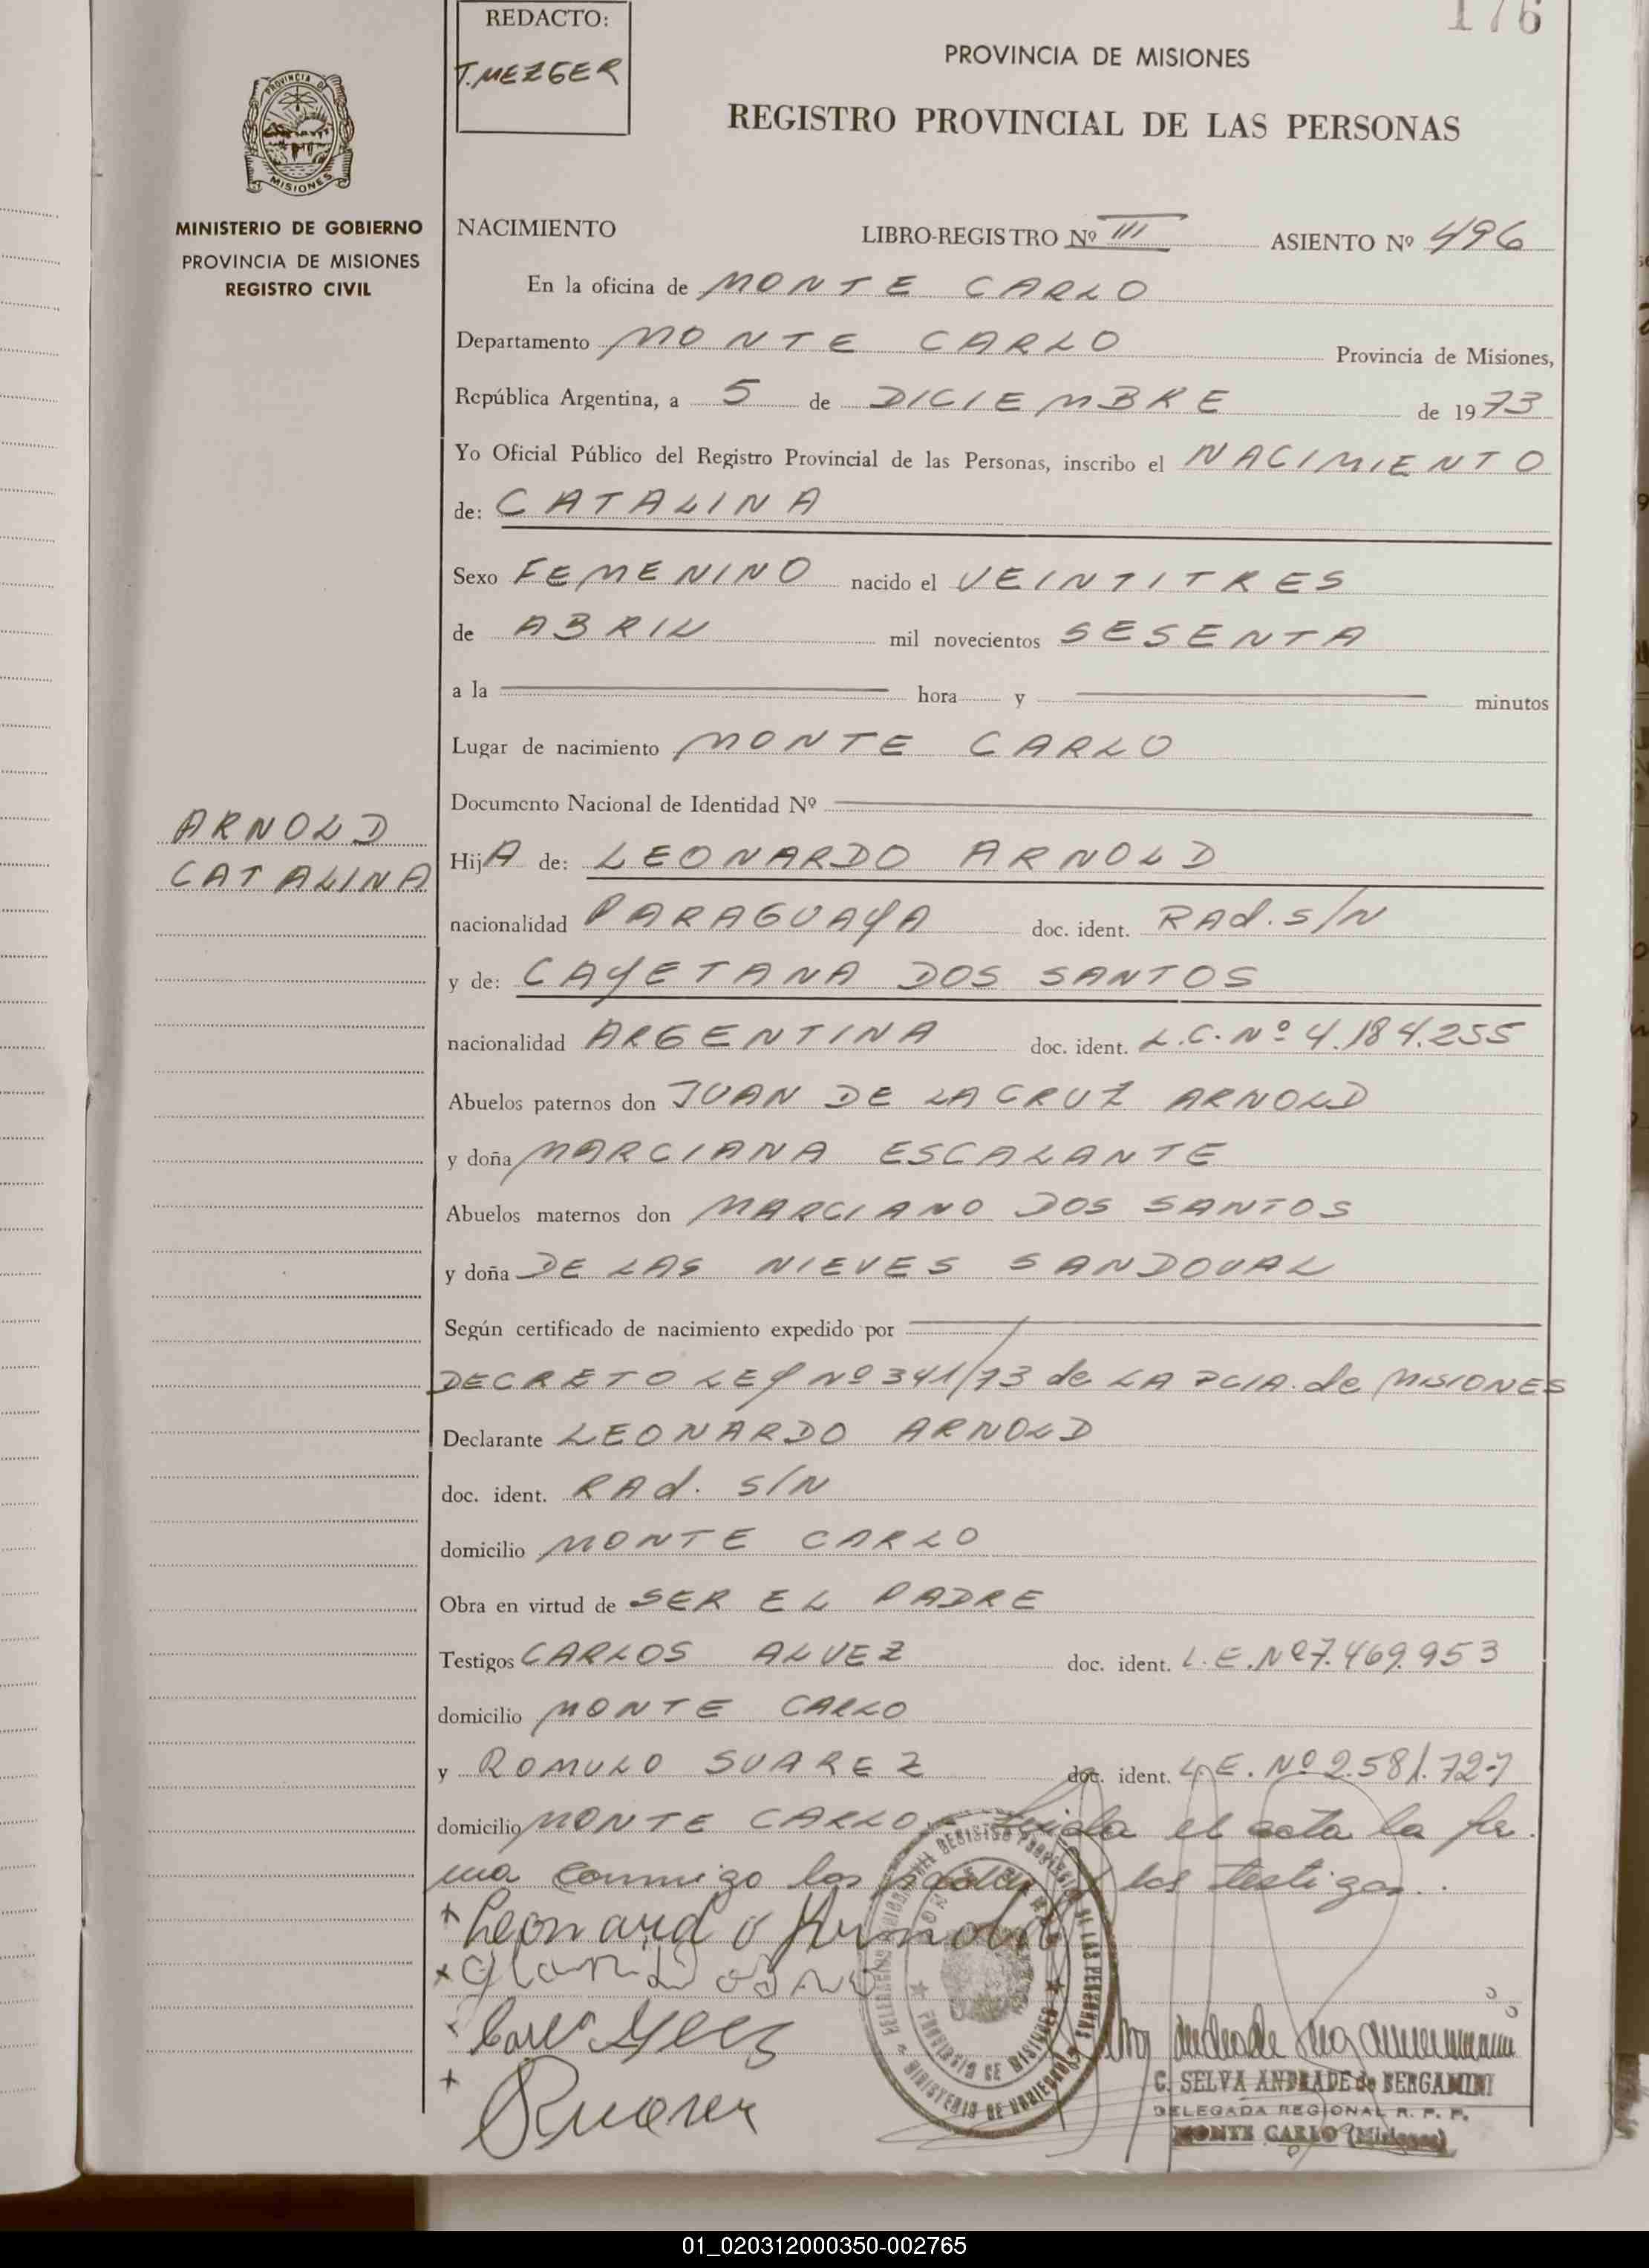 REDACTO:
T. MEZGER
176
PROVINCIA DE MISIONES
REGISTRO PROVINCIAL DE LAS PERSONAS
PROVINCIA DE
MISIONES
MINISTERIO DE GOBIERNO
PROVINCIA DE MISIONES
REGISTRO CIVIL
NACIMIENTO LIBRO-REGISTRO Nº III ASIENTO Nº 496
En la oficina de MONTE CARLO
Departamento MONTE CARLO Provincia de Misiones,
República Argentina, a 5 de DICIEMBRE de 1973
Yo Oficial Público del Registro Provincial de las Personas, inscribo el NACIMIENTO
de: CATALINA
Sexo FEMENINO nacido el VEINTITRES
de ABRIL mil novecientos SESENTA
a la hora y minutos
Lugar de nacimiento MONTE CARLO
Documento Nacional de Identidad Nº
ARNOLD
CATALINA
HijA de: LEONARDO ARNOLD
nacionalidad PARAGUAYA doc. ident. RAd. s/N
y de: CAYETANA DOS SANTOS
nacionalidad ARGENTINA doc. ident. L.C. Nº 4.184.255
Abuelos paternos don JUAN DE LA CRUZ ARNOLD
y doña MARCIANA ESCALANTE
Abuelos maternos don MARCIANO DOS SANTOS
y doña DE LAS NIEVES SANDOVAL
Según certificado de nacimiento expedido por
DECRETO LEY Nº 341/73 de LA PCIA. de MISIONES
Declarante LEONARDO ARNOLD
doc. ident. RAd. S/N
domicilio MONTE CARLO
Obra en virtud de SER EL PADRE
Testigos CARLOS ALVEZ doc. ident. L.E. Nº 7.469.953
domicilio MONTE CARLO
y ROMULO SUAREZ doc. ident. L.E. Nº 2.581.727
domicilio MONTE CARLO - Leida el acta la fir.
ma conmigo los padres y los testigos.
+ Leonardo Arnold
+
+
Suarez
PROVINCIA DE MISIONES
MINISTERIO DE GOBIERNO
C. SELVA ANDRADE de BERGAMINI
DELEGADA REGIONAL R. P. P.
MONTE CARLO (Misiones)
01_020312000350-002765